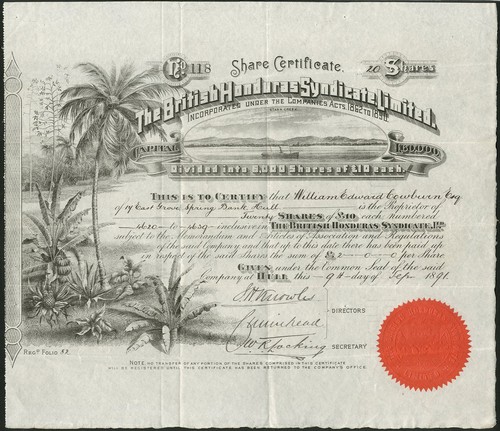 No 118 Share Certificate. 20 Shares
The British Honduras Syndicate, Limited.
INCORPORATED UNDER THE COMPANIES ACTS, 1862 TO 1890.
CAPITAL £80,000
Divided into 8,000 Shares of £10 each.
THIS IS TO CERTIFY that William Edward Esq
of East Grove, Spring Bank, Hull is the Proprietor of
Twenty SHARES of £10 each Numbered
4620 to 4639 inclusive in THE BRITISH HONDURAS SYNDICATE,
subject to the Memorandum and Articles of Association and Regulations
of the said Company and that up to this date there has been paid up
in respect of the said Shares the sum of £2-0-0 per Share
GIVEN under the Common Seal of the said
Company at HULL this 9th day of Sep 1891.
DIRECTORS
SECRETARY
REGR FOLIO 52.
NOTE, NO TRANSFER OF ANY PORTION OF THE SHARES COMPRISED IN THIS CERTIFICATE
WILL BE REGISTERED UNTIL THIS CERTIFICATE HAS BEEN RETURNED TO THE COMPANY'S OFFICE.